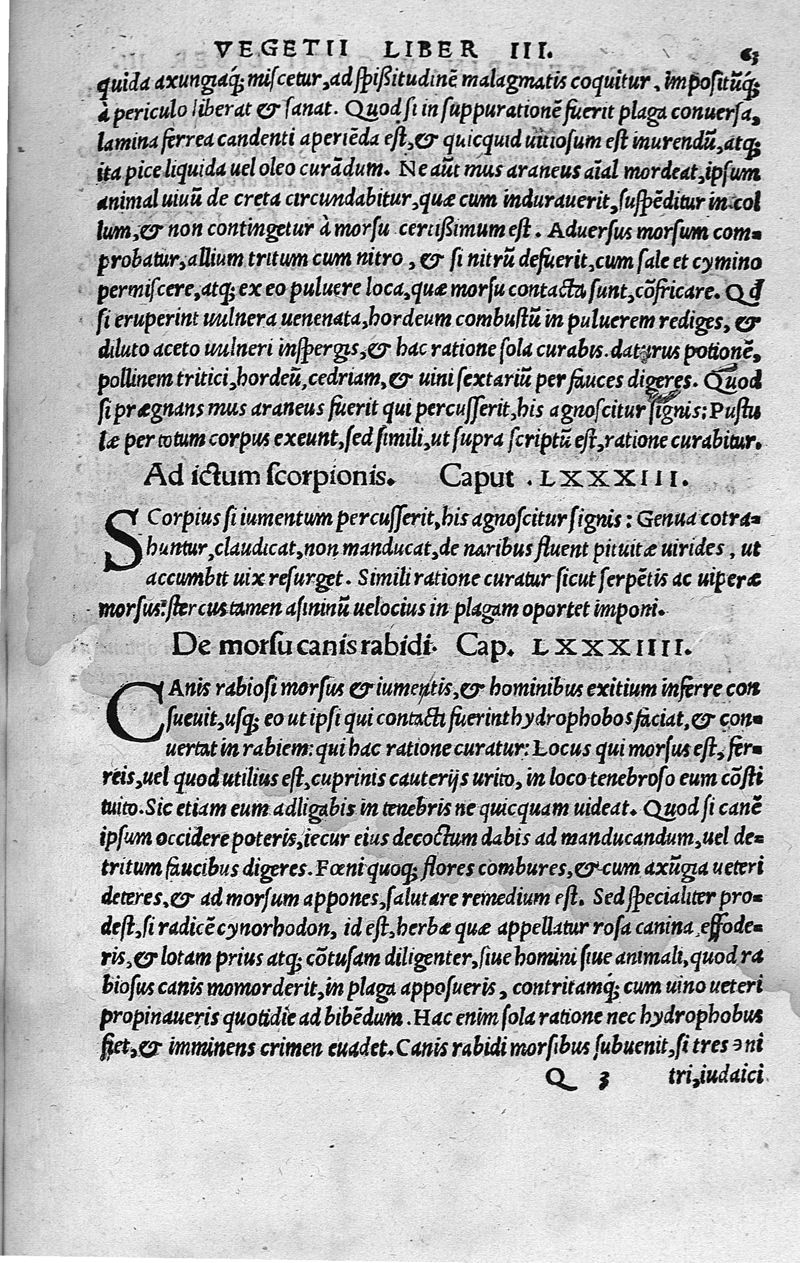 VEGETII LIBER III. 63
quida axungiaq; miscetur, ad spißitudinē malagmatis coquitur, impositūq;
à periculo liberat & sanat. Quod si in suppurationē fuerit plaga conuersa,
lamina ferrea candenti aperiēda est, & quicquid uitiosum est inurendū, atq;
ita pice liquida uel oleo curādum. Ne aūt mus araneus aīal mordeat, ipsum
animal uiuū de creta circundabitur, quæ cum indurauerit, suspēditur in col
lum, & non contingetur à morsu certißimum est. Aduersus morsum com-
probatur, allium tritum cum nitro, & si nitrū defuerit, cum sale et cymino
permiscere, atq; ex eo puluere loca, quæ morsu contacta sunt, cōfricare. Qđ
si eruperint uulnera uenenata, hordeum combustū in puluerem rediges, &
diluto aceto uulneri inspergis, & hac ratione sola curabis. daturus potionē,
pollinem tritici, hordeū, cedriam, & uini sextariū per fauces digeres. Quod
si prægnans mus araneus fuerit qui percusserit, his agnoscitur signis: Pustu
læ per totum corpus exeunt, sed simili, ut supra scriptū est, ratione curabitur.
Ad ictum scorpionis. Caput .LXXXIII.
SCorpius si iumentum percusserit, his agnoscitur signis: Genua cotra-
huntur, claudicat, non manducat, de naribus fluent pituitæ uirides, ut
accumbit uix resurget. Simili ratione curatur sicut serpētis ac uiperæ
morsus: stercus tamen asininū uelocius in plagam oportet imponi.
De morsu canis rabidi. Cap. LXXXIIII.
CAnis rabiosi morsus & iumentis, & hominibus exitium inferre con
sueuit, usq; eo ut ipsi qui contacti fuerint hydrophobos faciat, & con-
uertat in rabiem: qui hac ratione curatur: Locus qui morsus est, fer-
reis, uel quod utilius est, cuprinis cauterijs urito, in loco tenebroso eum cōsti
tuito. Sic etiam eum adligabis in tenebris ne quicquam uideat. Quod si canē
ipsum occidere poteris, iecur eius decoctum dabis ad manducandum, uel de-
tritum faucibus digeres. Fœni quoq; flores combures, & cum axūgia ueteri
deteres, & ad morsum appones, salutare remedium est. Sed specialiter pro-
dest, si radicē cynorhodon, id est, herbæ quæ appellatur rosa canina effode-
ris, & lotam prius atq; cōtusam diligenter, siue homini siue animali, quod ra
biosus canis momorderit, in plaga apposueris, contritamq; cum uino ueteri
propinaueris quotidie ad bibēdum. Hac enim sola ratione nec hydrophobus
fiet, & imminens crimen euadet. Canis rabidi morsibus subuenit, si tres ↄni
Q 3 tri, iudaici